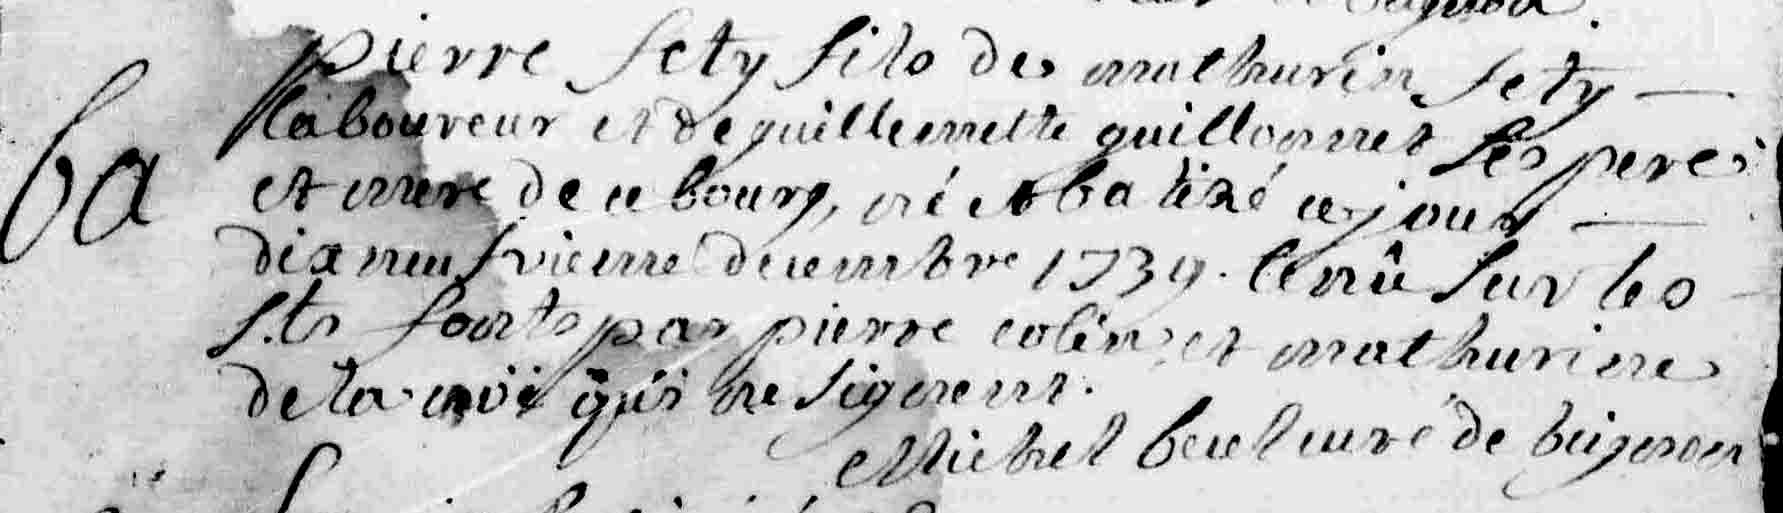 ba
pierre sety fils de mathurin sety
laboureur et de guillemette guillomet ses pere
et mere de ce bourg, né et batizé ce jour
dix neufvieme decembre 1739. tenû sur les
sts fonts par pierre colin, et mathurine
de la qui ne signent.
Michel curé de